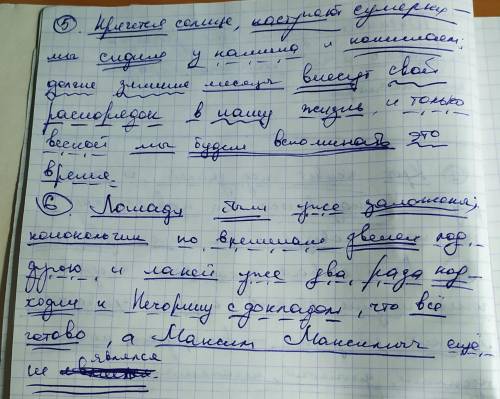 ⑤. Прячется солнце, наступают сумерки –
мы сидим у камина и понимаем:
долгие зимние месяцы внесут свой
распорядок в нашу жизнь, и только
весной мы будем вспоминать это
время.
⑥. Лошади были уже заложены;
колокольчик по временам звенел под
дугою, и лакей уже два раза под-
ходил к Печорину с докладом, что всё
готово, а Максим Максимыч ещё
не являлся